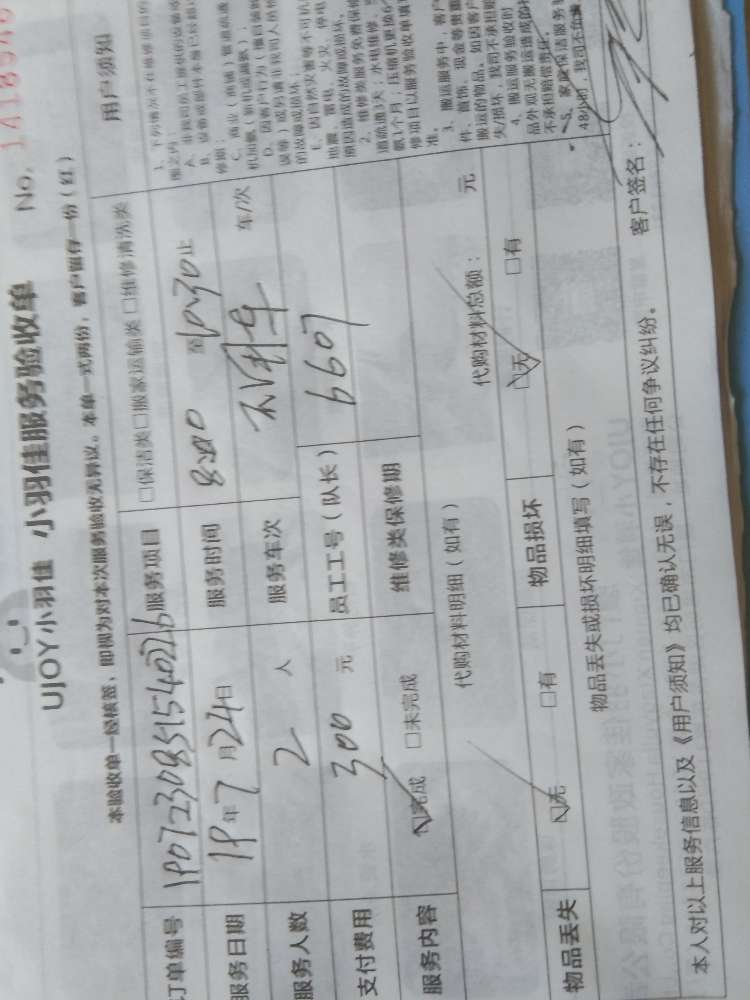 UJOY小羽佳 小羽佳服务验收单
No. 1418946
本验收单一经核签,即视为对本次服务验收无异议。本单一式两份,客户留存一份(红)
订单编号 190723085154022b 服务项目 □保洁类□搬家运输类□维修清洗类
服务日期 19年7月24日 服务时间 8:00 至 10:30止
服务人数 2 人 服务车次 车/次
支付费用 300 元 员工工号(队长) 6607
服务内容 ☑完成 □未完成 维修类保修期
代购材料明细(如有) 代购材料总额: 元
物品丢失 ☑无 □有 物品损坏 ☑无 □有
物品丢失或损坏明细填写(如有)
本人对以上服务信息以及《用户须知》均已确认无误,不存在任何争议纠纷。 客户签名:
用户须知
1、下列情况不在维修项目的
围之内:
C、商业(商铺)管道疏通
D、因客户行为(擅自装
的故障或损坏;
E、因自然灾害等不可抗
地震、雷电、火灾、停电
原因造成的故障或损坏。
2、维修类服务免费保修
道疏通3天;水电维修、
氨1个月;压缩机更换6
修项目以服务验收单填写
准。
3、搬运服务中,客户
件、首饰、现金等贵重
搬运的物品。如因客户
失/损坏,我司不承担赔
4、搬运服务验收时
品外观无搬运造成的损
不承担赔偿责任。
5、家庭保洁服务验
48小时,我司不负责